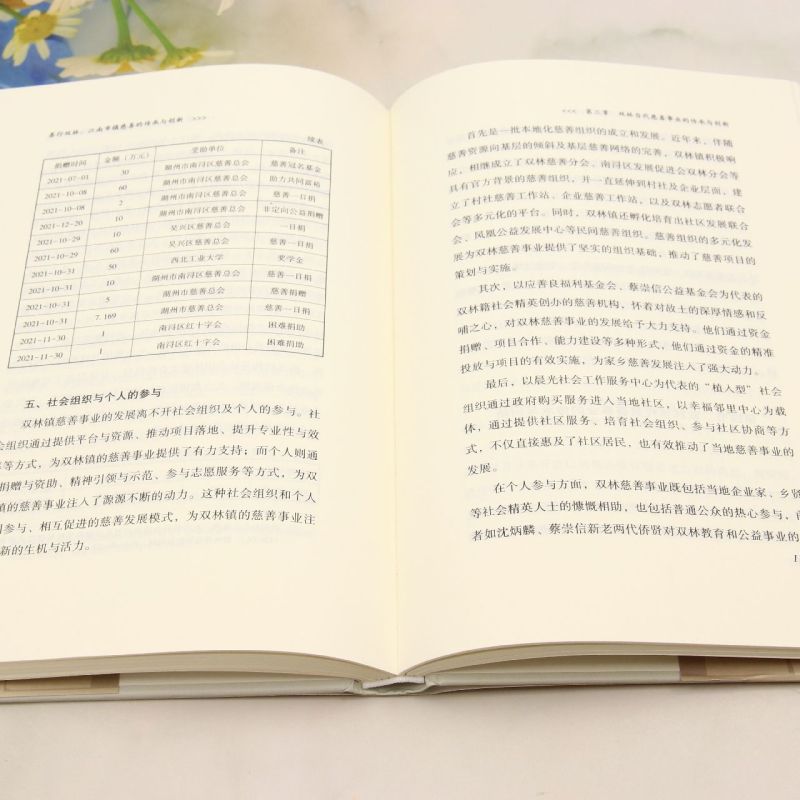 善行双林：江南市镇慈善的传承与创新 >>>
续表
捐赠时间 金额（万元） 受助单位 备注
2021-07-01 30 湖州市南浔区慈善总会 慈善冠名基金
2021-10-08 60 湖州市南浔区慈善总会 助力共同富裕
2021-10-08 2 湖州市南浔区慈善总会 慈善一日捐
2021-12-20 10 湖州市南浔区慈善总会 非定向公益捐赠
2021-10-29 10 吴兴区慈善总会 一日捐
2021-10-29 60 吴兴区慈善总会 慈善一日捐
2021-10-31 50 西北工业大学 奖学金
2021-10-31 10 湖州市南浔区慈善总会 慈善一日捐
2021-10-31 5 湖州市慈善总会 慈善捐赠
2021-10-31 7.169 湖州市慈善总会 慈善一日捐
2021-11-30 1 南浔区红十字会 困难捐助
2021-11-30 1 南浔区红十字会 困难捐助
五、社会组织与个人的参与
双林镇慈善事业的发展离不开社会组织及个人的参与。社
组织通过提供平台与资源、推动项目落地、提升专业性与效
等方式，为双林镇的慈善事业提供了有力支持；而个人则通
捐赠与资助、精神引领与示范、参与志愿服务等方式，为双
镇的慈善事业注入了源源不断的动力。这种社会组织和个人
同参与、相互促进的慈善发展模式，为双林镇的慈善事业注
新的生机与活力。
<<< 第三章 双林当代慈善事业的传承与创新
首先是一批本地化慈善组织的成立和发展。近年来，伴随
慈善资源向基层的倾斜及基层慈善网络的完善，双林镇积极响
应，相继成立了双林慈善分会、南浔区发展促进会双林分会等
具有官方背景的慈善组织，并一直延伸到村社及企业层面，建
立了村社慈善工作站、企业慈善工作站，以及双林志愿者联合
会等多元化的平台。同时，双林镇还孵化培育出社区发展联合
会、凤凰公益发展中心等民间慈善组织。慈善组织的多元化发
展为双林慈善事业提供了坚实的组织基础，推动了慈善项目的
策划与实施。
其次，以应善良福利基金会、蔡崇信公益基金会为代表的
双林籍社会精英创办的慈善机构，怀着对故土的深厚情感和反
哺之心，对双林慈善事业的发展给予大力支持。他们通过资金
捐赠、项目合作、能力建设等多种形式，他们通过资金的精准
投放与项目的有效实施，为家乡慈善发展注入了强大动力。
最后，以晨光社会工作服务中心为代表的“植入型”社会
组织通过政府购买服务进入当地社区，以幸福邻里中心为载
体，通过提供社区服务、培育社会组织、参与社区协商等方
式，不仅直接惠及了社区居民，也有效推动了当地慈善事业的
发展。
在个人参与方面，双林慈善事业既包括当地企业家、乡贤
等社会精英人士的慷慨相助，也包括普通公众的热心参与，前
者如沈炳麟、蔡崇信新老两代侨贤对双林教育和公益事业的
1